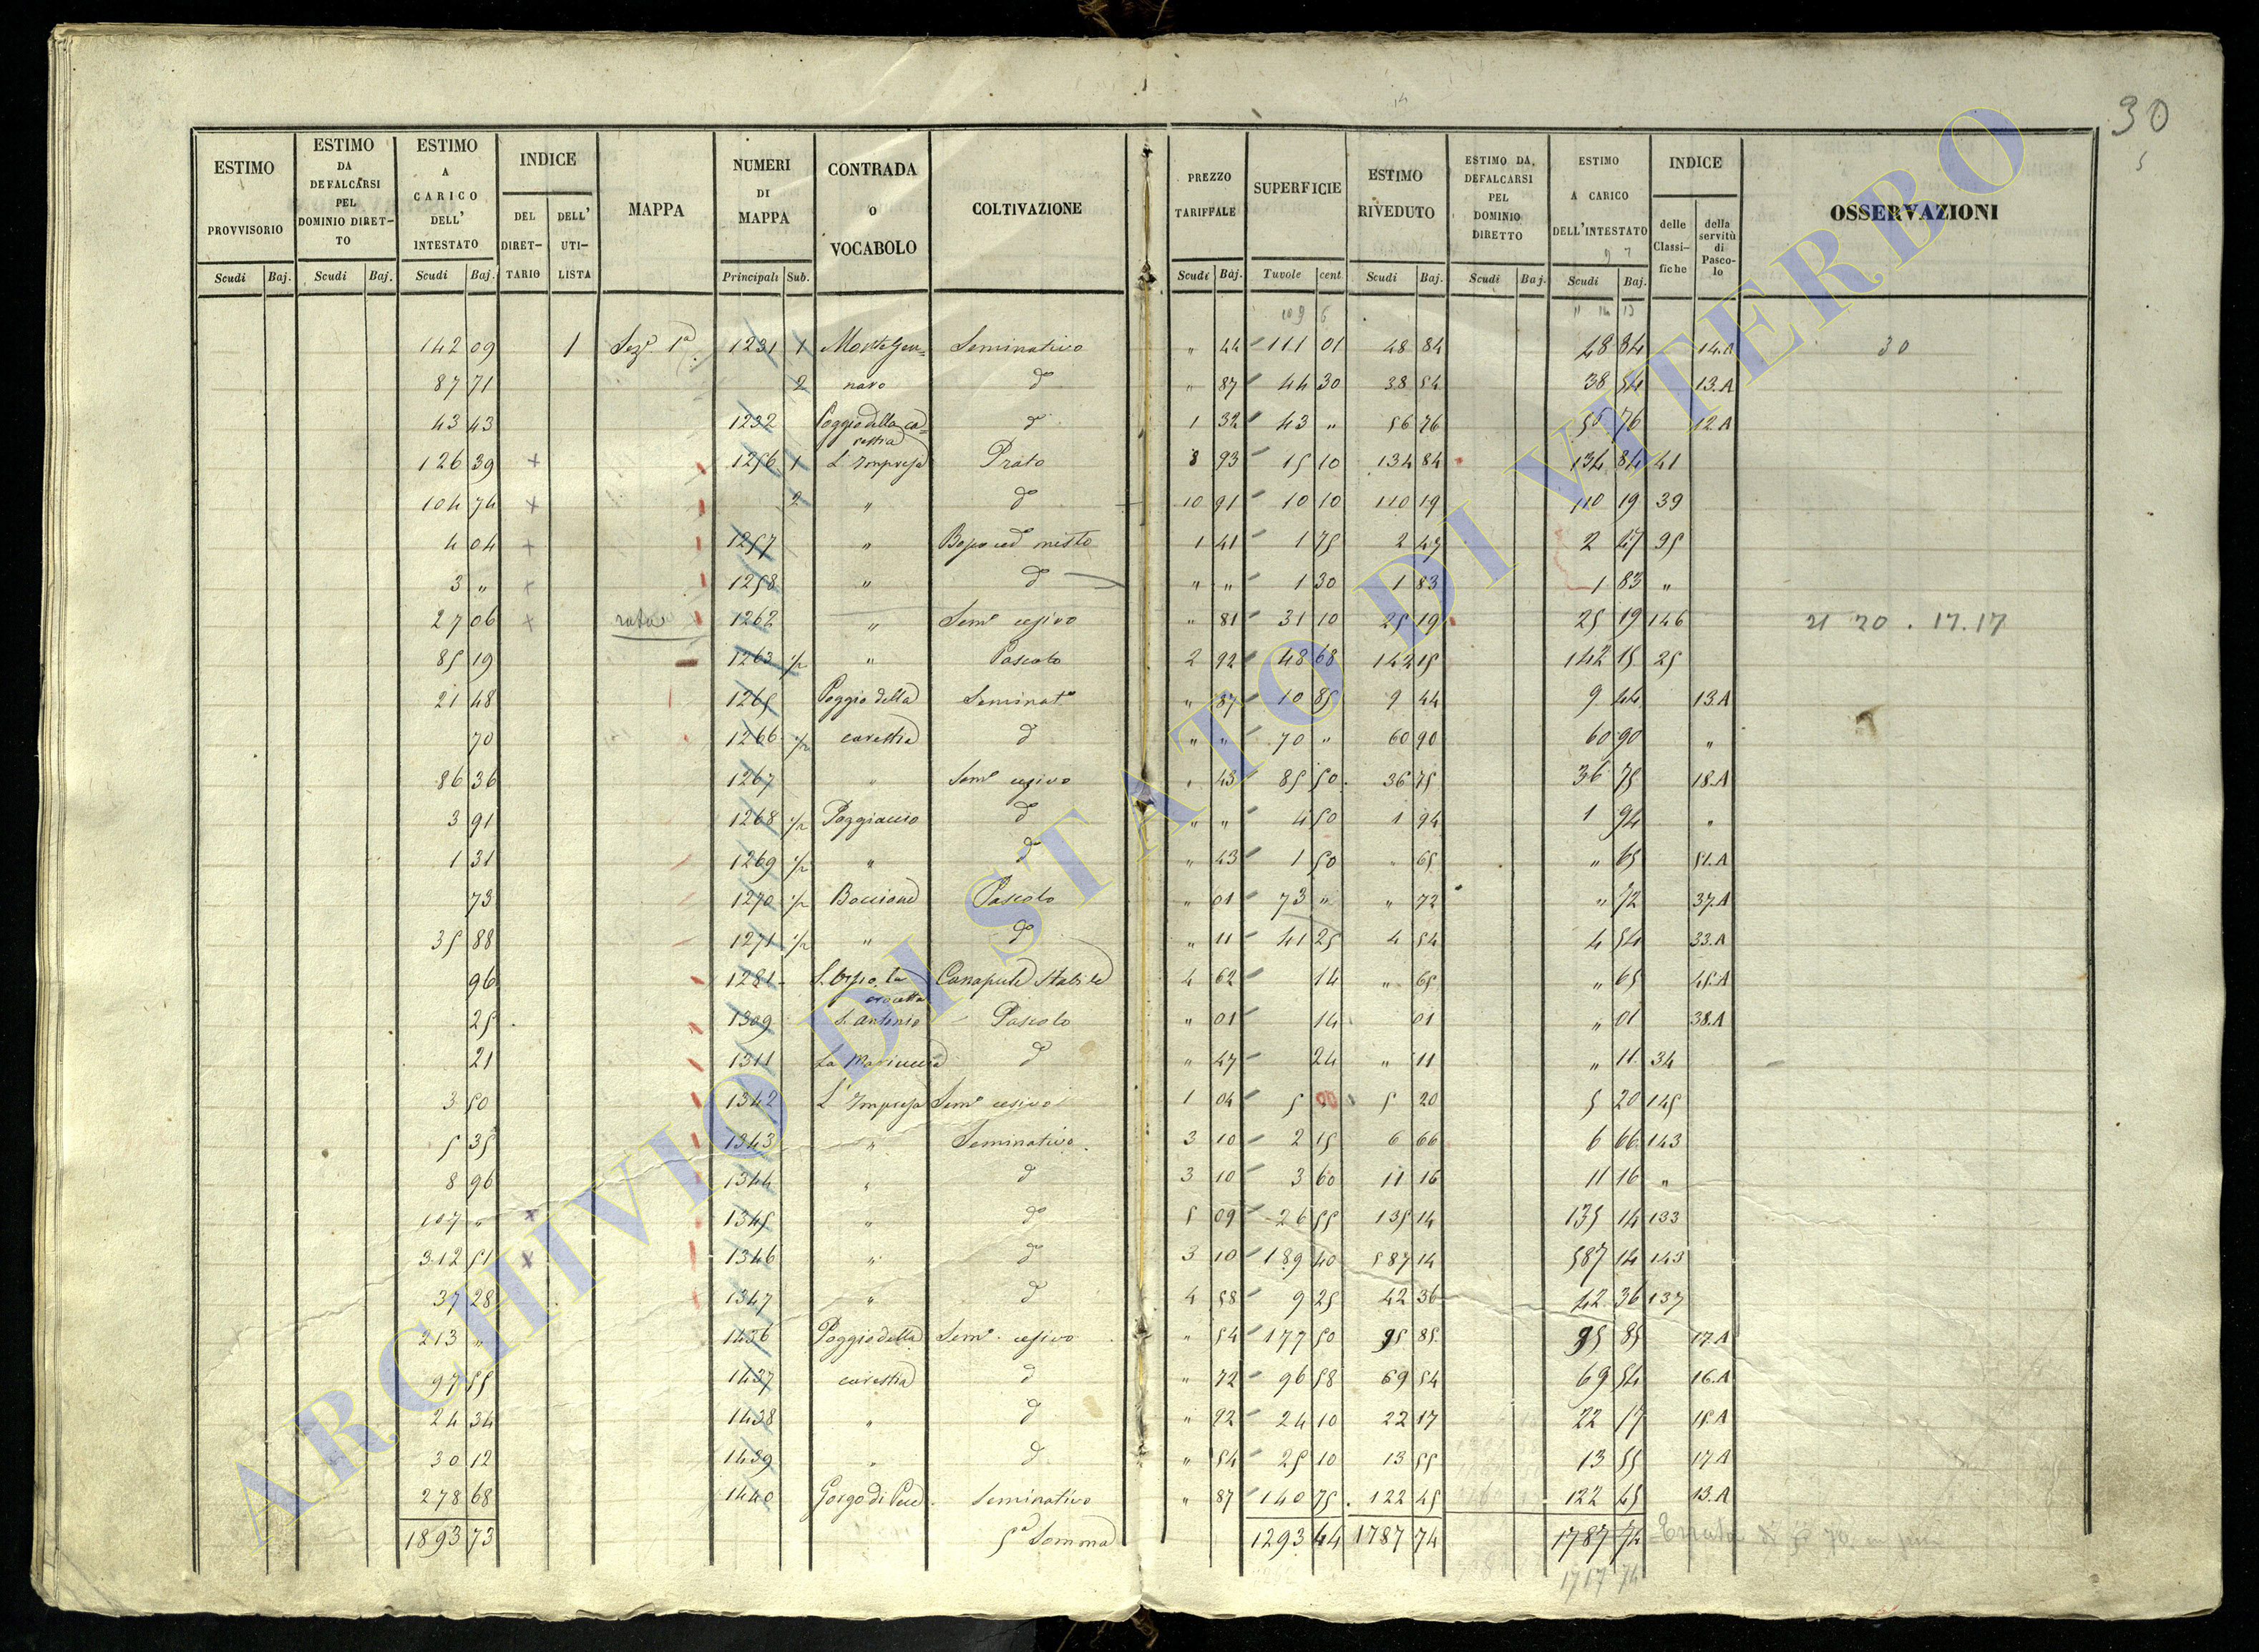 30
ESTIMO PROVVISORIO Scudi Baj.
ESTIMO DA DEFALCARSI PEL DOMINIO DIRETTO Scudi Baj.
ESTIMO A CARICO DELL' INTESTATO Scudi Baj.
INDICE DEL DIRETTARIO DELL' UTILISTA
MAPPA
NUMERI DI MAPPA Principali Sub.
CONTRADA o VOCABOLO
COLTIVAZIONE
PREZZO TARIFFALE Scudi Baj.
SUPERFICIE Tavole cent.
ESTIMO RIVEDUTO Scudi Baj.
ESTIMO DA DEFALCARSI PEL DOMINIO DIRETTO Scudi Baj.
ESTIMO A CARICO DELL'INTESTATO Scudi Baj.
INDICE delle Classifiche della servitù di Pascolo
OSSERVAZIONI
142 09 1 Sez.e 1a 1231 1 Montegen= Seminativo " 44 111 01 48 84 48 84 14.A 30
87 71 2 naro do " 87 44 30 38 54 38 54 13.A
43 43 1232 Poggio della ca= restia do 1 32 43 " 56 76 56 76 12.A
126 39 + 1256 1 L'Impresa Prato 8 93 15 10 134 84 134 84 41
104 74 + 2 " do 10 91 10 10 110 19 110 19 39
4 04 + 1257 " Bosco ced misto 1 41 1 75 2 47 2 47 95
3 " + 1258 " do " " 1 30 1 83 1 83 "
27 06 + rata 1262 " Sem.o cesivo " 81 31 10 25 19 25 19 146 21 20 . 17.17
85 19 1263 1/2 " Pascolo 2 92 48 68 142 15 142 15 25
21 48 1265 Poggio della Seminat.o " 87 10 85 9 44 9 44 13.A
70 1266 1/2 carestia do " " 70 " 60 90 60 90 "
86 36 1267 " Sem.o cesivo " 43 85 50 36 75 36 75 18.A
3 91 1268 1/2 Poggiaccio do " " 4 50 1 94 1 94 "
1 31 1269 1/2 " do " 43 1 50 " 65 " 65 51.A
73 1270 1/2 Pascolo " 01 73 " " 72 " 72 37.A
35 88 1271 1/2 " do " 11 41 25 4 54 4 54 33.A
96 1281 la crocetta Canapule stabile 4 62 14 " 65 " 65 45.A
25 1309 S. Antonio Pascolo " 01 14 01 " 01 38.A
21 1311 La do " 47 24 " 11 " 11 34
3 50 1342 L'Impresa Sem.o cesivo 1 04 5 00 5 20 5 20 145
5 35 1343 " Seminativo 3 10 2 15 6 66 6 66 143
8 96 1344 " do 3 10 3 60 11 16 11 16 "
107 " x 1345 " do 5 09 26 55 135 14 135 14 133
312 51 x 1346 " do 3 10 189 40 587 14 587 14 143
37 28 1347 " do 4 58 9 25 42 36 42 36 137
213 " 1436 Poggio della Sem.o cesivo " 54 177 50 95 85 95 85 17.A
97 55 1437 carestia do " 72 96 58 69 54 69 54 16.A
24 34 1438 " do " 92 24 10 22 17 22 17 15.A
30 12 1439 " do " 54 25 10 13 55 13 55 17.A
278 68 1440 Seminativo " 87 140 75 122 45 122 45 13.A
1893 73 5a Somma 1293 44 1787 74 1787 74
1717 74
ARCHIVIO DI STATO DI VITERBO